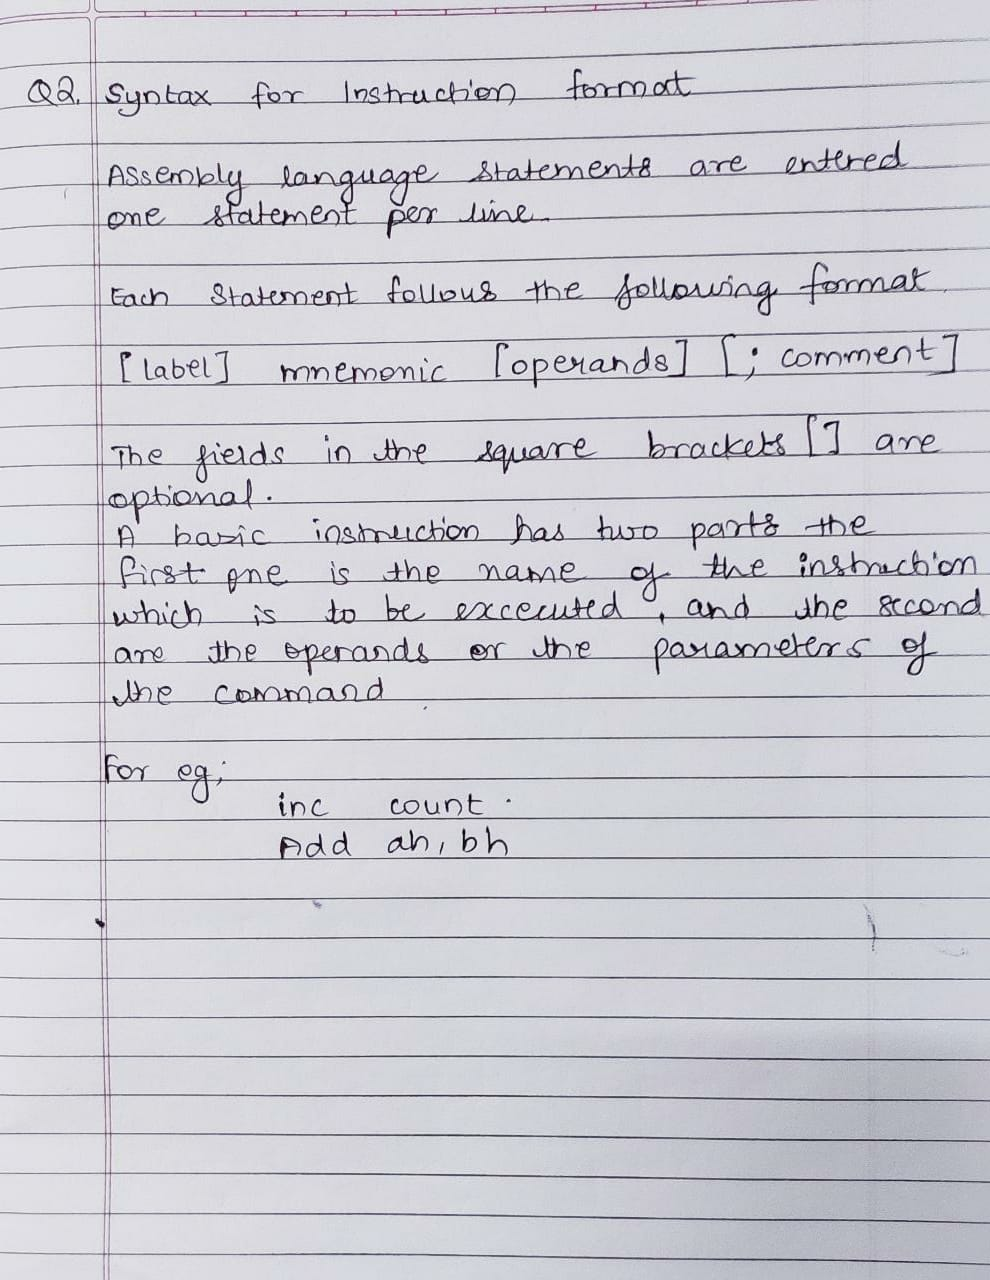 Q2. Syntax for Instruction format
Assembly language statements are entered
one statement per line.
Each Statement follows the following format.
[label] mnemonic [operands] [; comment]
The fields in the square brackets [] are
optional.
A basic instruction has two parts the
first one is the name of the instruction
which is to be excecuted, and the second
are the operands or the parameters of
the command
For eg;
inc count.
Add ah, bh